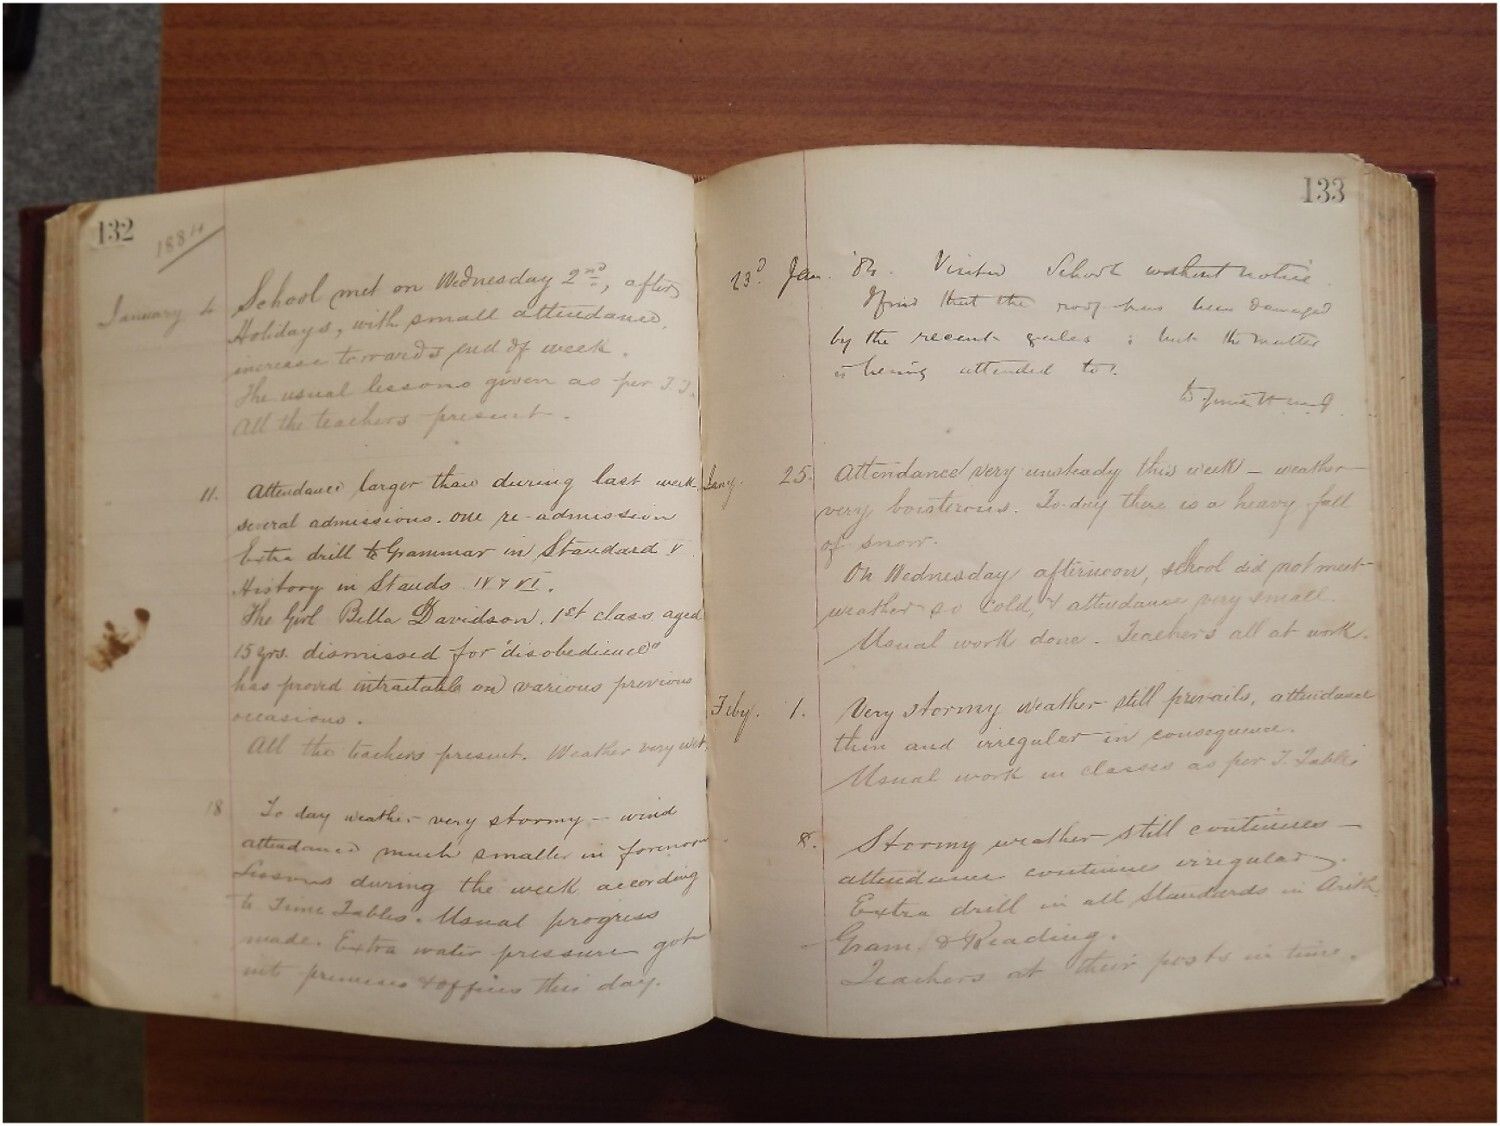 132
1884
January 4. School met on Wednesday 2nd, after
Holidays, with small attendance,
increase towards end of week.
The usual lessons given as per T.T.
All the teachers present.
11. Attendance larger than during last week.
several admissions. one re-admission
Extra drill to Grammar in Standard V
History in Stands. IV & VI.
The Girl Bella Davidson. 1st class, aged
15 yrs. dismissed for "disobedience"
has proved intractable on various previous
occasions.
All the teachers present. Weather very wet.
18 To day weather very stormy - wind
attendance much smaller in forenoon.
Lessons during the week according
to Time Tables. Usual progress
made. Extra water pressure got
into premises & offices this day.
133
23d Jan. '84. Visited School without notice.
I find that the roof has been damaged
by the recent gales; but the matter
is being attended to.
Jany. 25. Attendance very unsteady this week - weather
very boisterous. To-day there is a heavy fall
of snow.
On Wednesday afternoon, school did not meet
weather so cold, & attendance very small.
Usual work done. Teachers all at work.
Feby. 1. Very stormy weather still prevails, attendance
thin and irregular in consequence.
Usual work in classes as per T. Table.
8. Stormy weather still continues -
attendance continues irregular.
Extra drill in all Standards in Arith
Gram. & Reading.
Teachers at their posts in time.